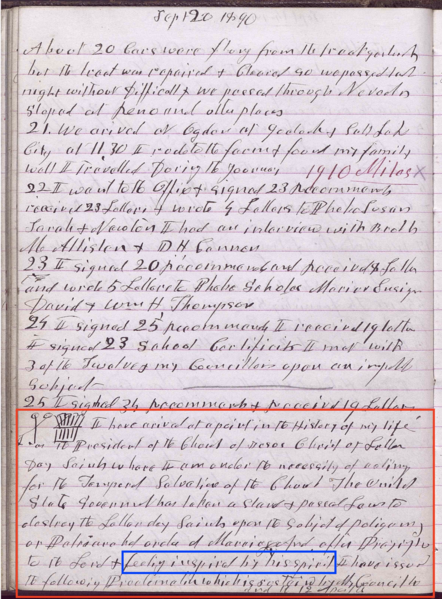 Sept 20 1890
About 20 Cars were flung from the track yesterday
but the track was repaired & Cleared so we passed last
night without difficulty & we passed through Nevada
Stoped at Reno and other places
21. We arived at Ogden at Salt Lake
City at 11.30 I rode to the farm & found my family
well I Travelled During the Journey 1910 Miles X
22 I went to the Office & signed 23 Recommends
received 23 Letters & wrote 4 Letters to Phebe Susan
Sarah & Newton I had an interview with Broth
Mc Allister & D H Cannon
23 I signed 20 Recommends and received 8 Letters
and wrote 5 Letters to Phebe Scholes Marion Ensign
David & Wm H Thompson
24 I signed 25 Recommends I received 19 Letters
I signed 23 School Certificates I met with
3 of the Twelve & my Councillors upon an important
subject
25 I signed 24 Recommends & received 19 Letters
I have arived at a point in the History of my life
as the President of the Church of Jesus Christ of Latter
Day Saints where I am under the necessity of acting
for the Temporal Salvation of the Church The United
State Governmet has taken a Stand & passed Laws to
destroy the Latter day Saints upon the Subject of poligamy
or Patriarchal order of Marriage and after Praying
to the Lord & feeling inspired by his spirit I have issued
the following Proclamation which is sustained by my Councillors
and the 12 Apostles